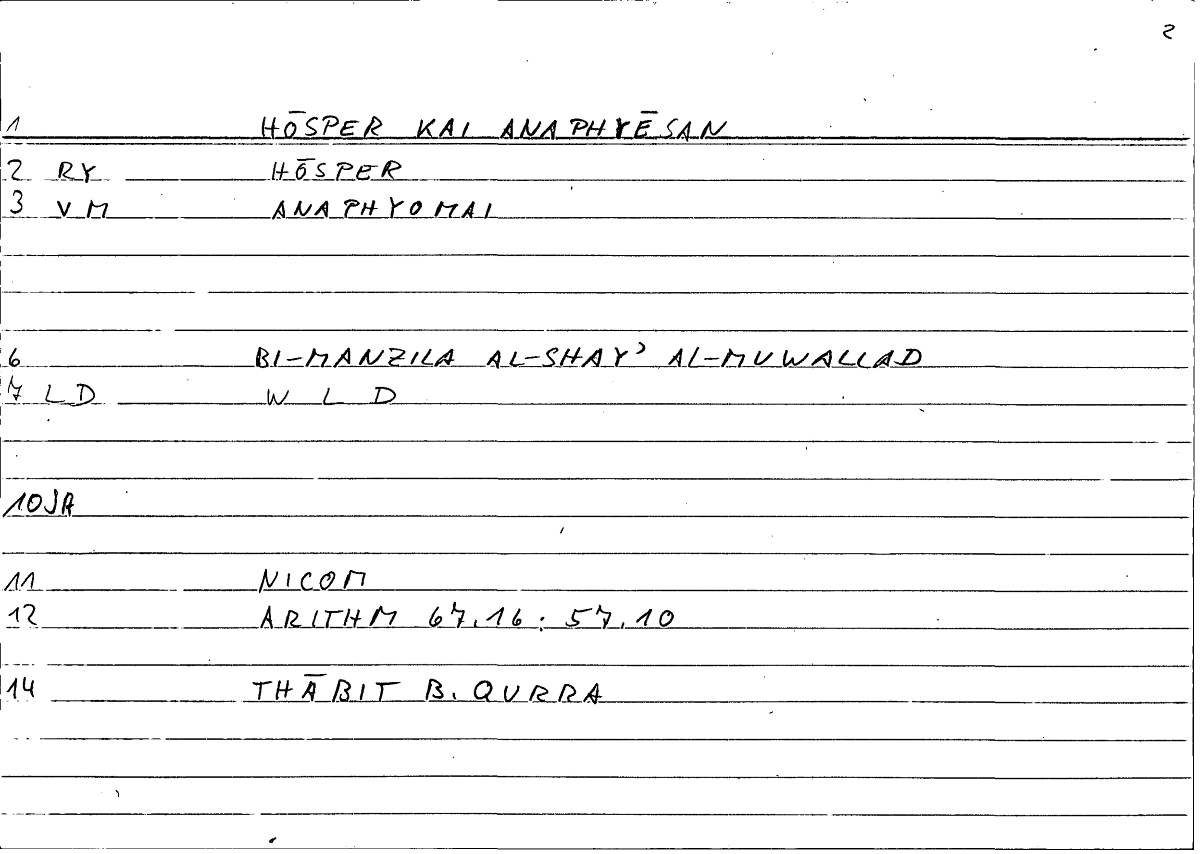 2
1 HŌSPER KAI ANAPHYĒSAN
2 RY HŌSPER
3 VM ANAPHYOMAI
6 BI-MANZILA AL-SHAYʾ AL-MUWALLAD
7 LD W L D
10 JA
11 NICOM
12 ARITHM 67.16 : 57.10
14 THĀBIT B. QURRA